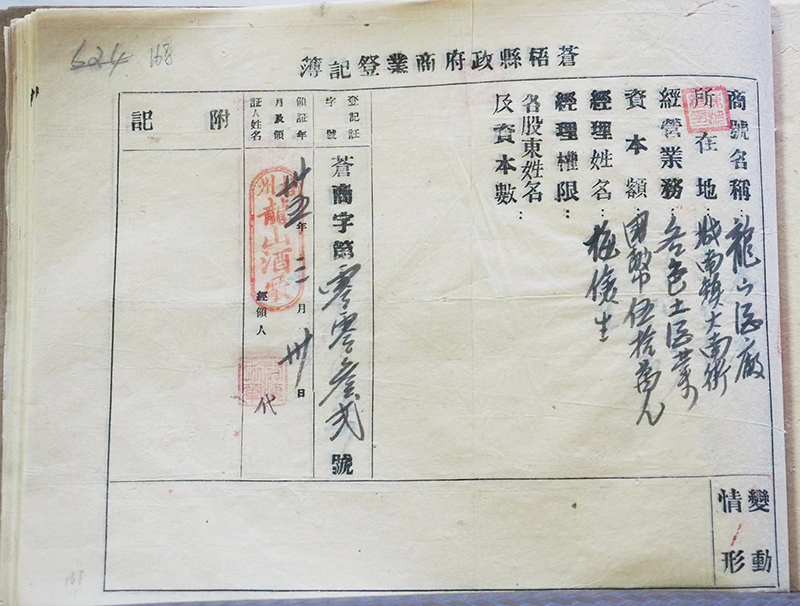 624 168
蒼梧縣政府商業登記簿
商號名稱：龍山酒廠
所在地：城南鎮大南街
經營業務：各色土酒業
資本額：國幣伍拾萬元
經理姓名：梅俊生
經理權限：
各股東姓名及資本數：
登記証字號 蒼商字第零零叁貳號
領証年月及領証人姓名 卅五年二月卅日
經領人 代
州龍山酒
附記
變動情形
168